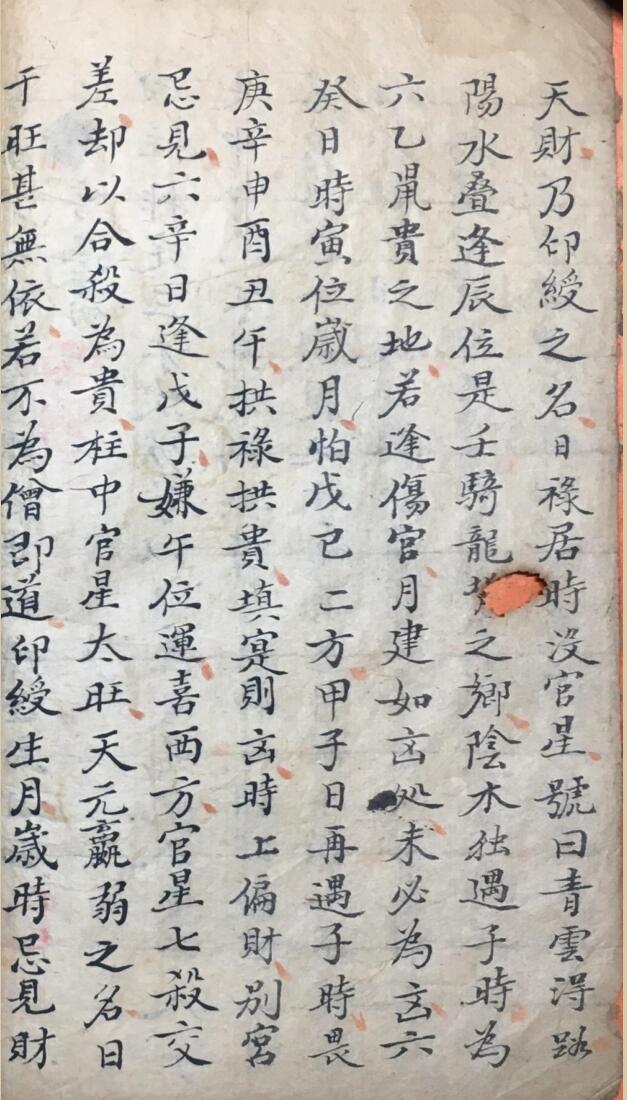 天財乃印綬之名日祿居時没官星號曰青雲得路
陽水叠逢辰位是壬騎龍之鄉陰木独遇子時為
六乙鼠貴之地若逢傷官月建如凶处未必為凶六
癸日時寅位嵗月怕戊己二方甲子日再遇子時畏
庚辛申酉丑午拱祿拱貴填寔則凶時上偏財別宮
忌見六辛日逢戊子嫌午位運喜西方官星七殺交
差却以合殺為貴柱中官星太旺天元羸弱之名日
干旺甚無依若不為僧即道印綬生月嵗時忌見財